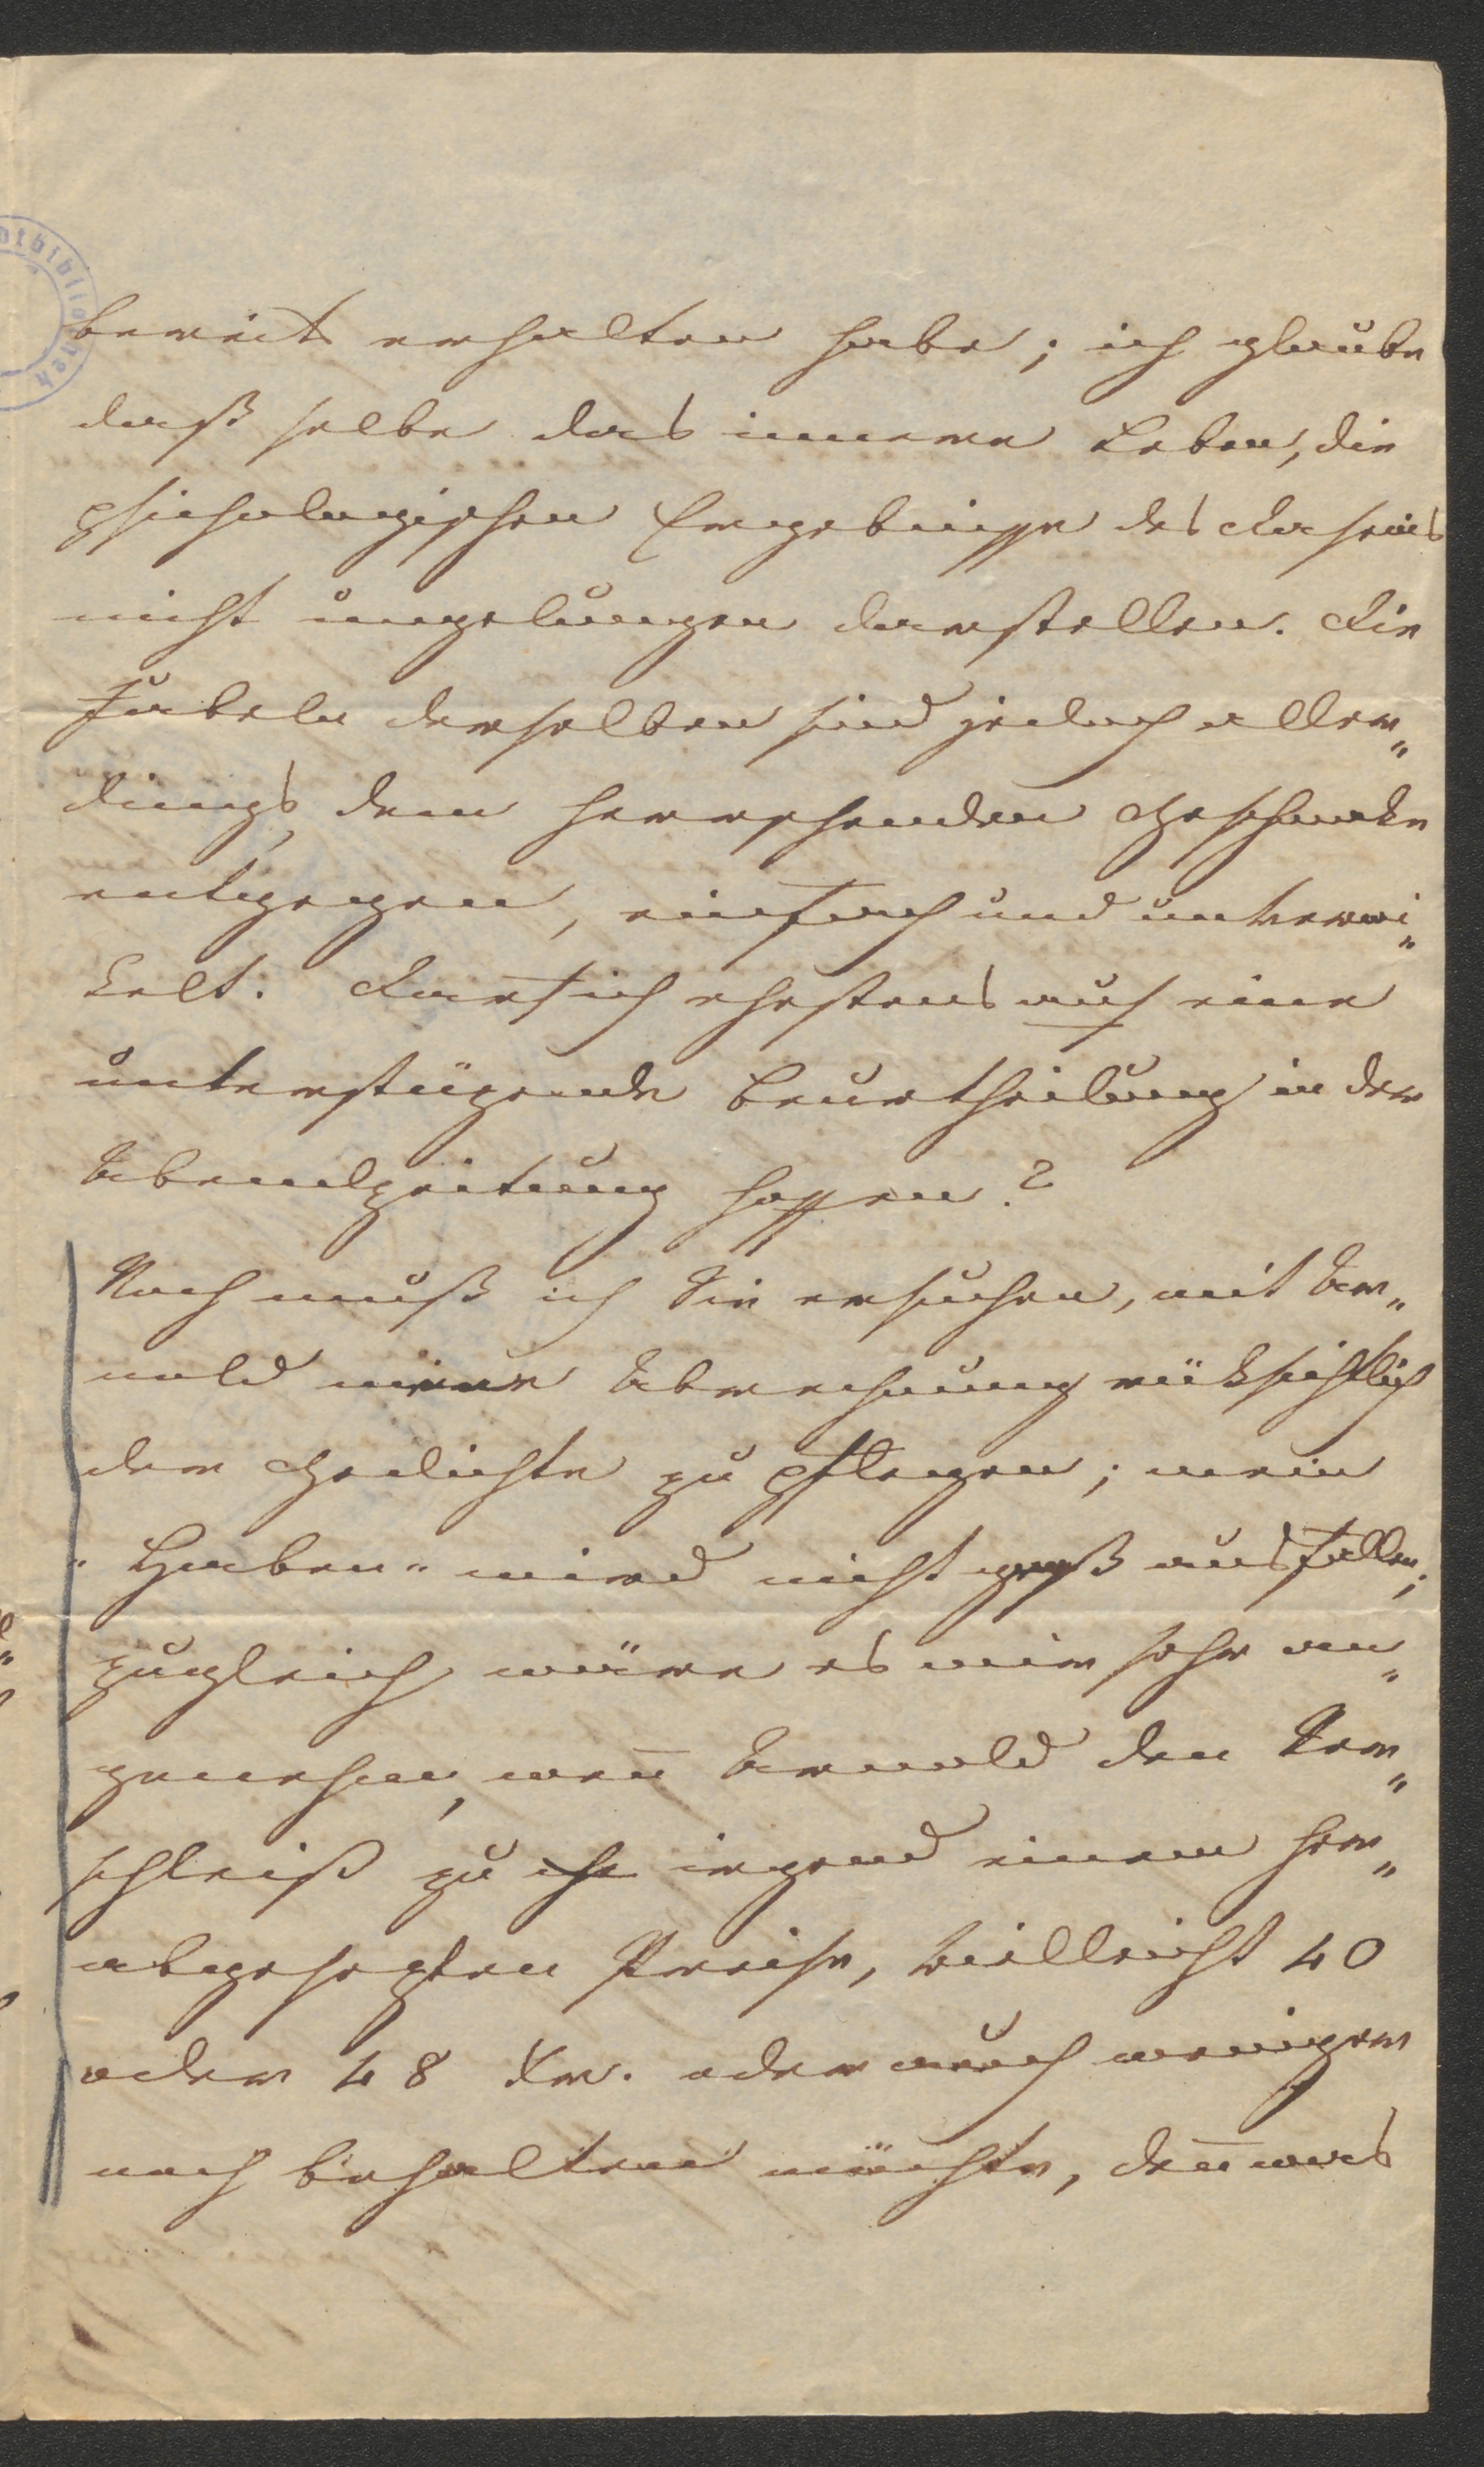 bereits erhalten habe; ich glaube
daß selbe das innere Leben, die
psichologischen Ergebnisse des Daseins
nicht ungelungen darstellen. Die
Fabeln derselben sind jedoch aller„
dings, dem herrschenden Geschmacke
entgegen, einfach und unverwi„
kelt. Darf ich ehestens auf eine
unterstüzende Beurtheilung in der
Abendzeitung hoffen?
Noch muß ich Sie ersuchen, mit Ar„
nold meine Abrechnung rüksichtlich
der Gedichte zu pflegen; mein
„Haben„ wird nicht groß ausfallen;
zugleich wäre es mir sehr an„
genehm, wen̄ Arnold den Ver„
schleiß zu irgend einem her„
abgesezten Preise, vielleicht 40
oder 48 Xr. oder auch weniger
noch behalten möchte, den̄ was